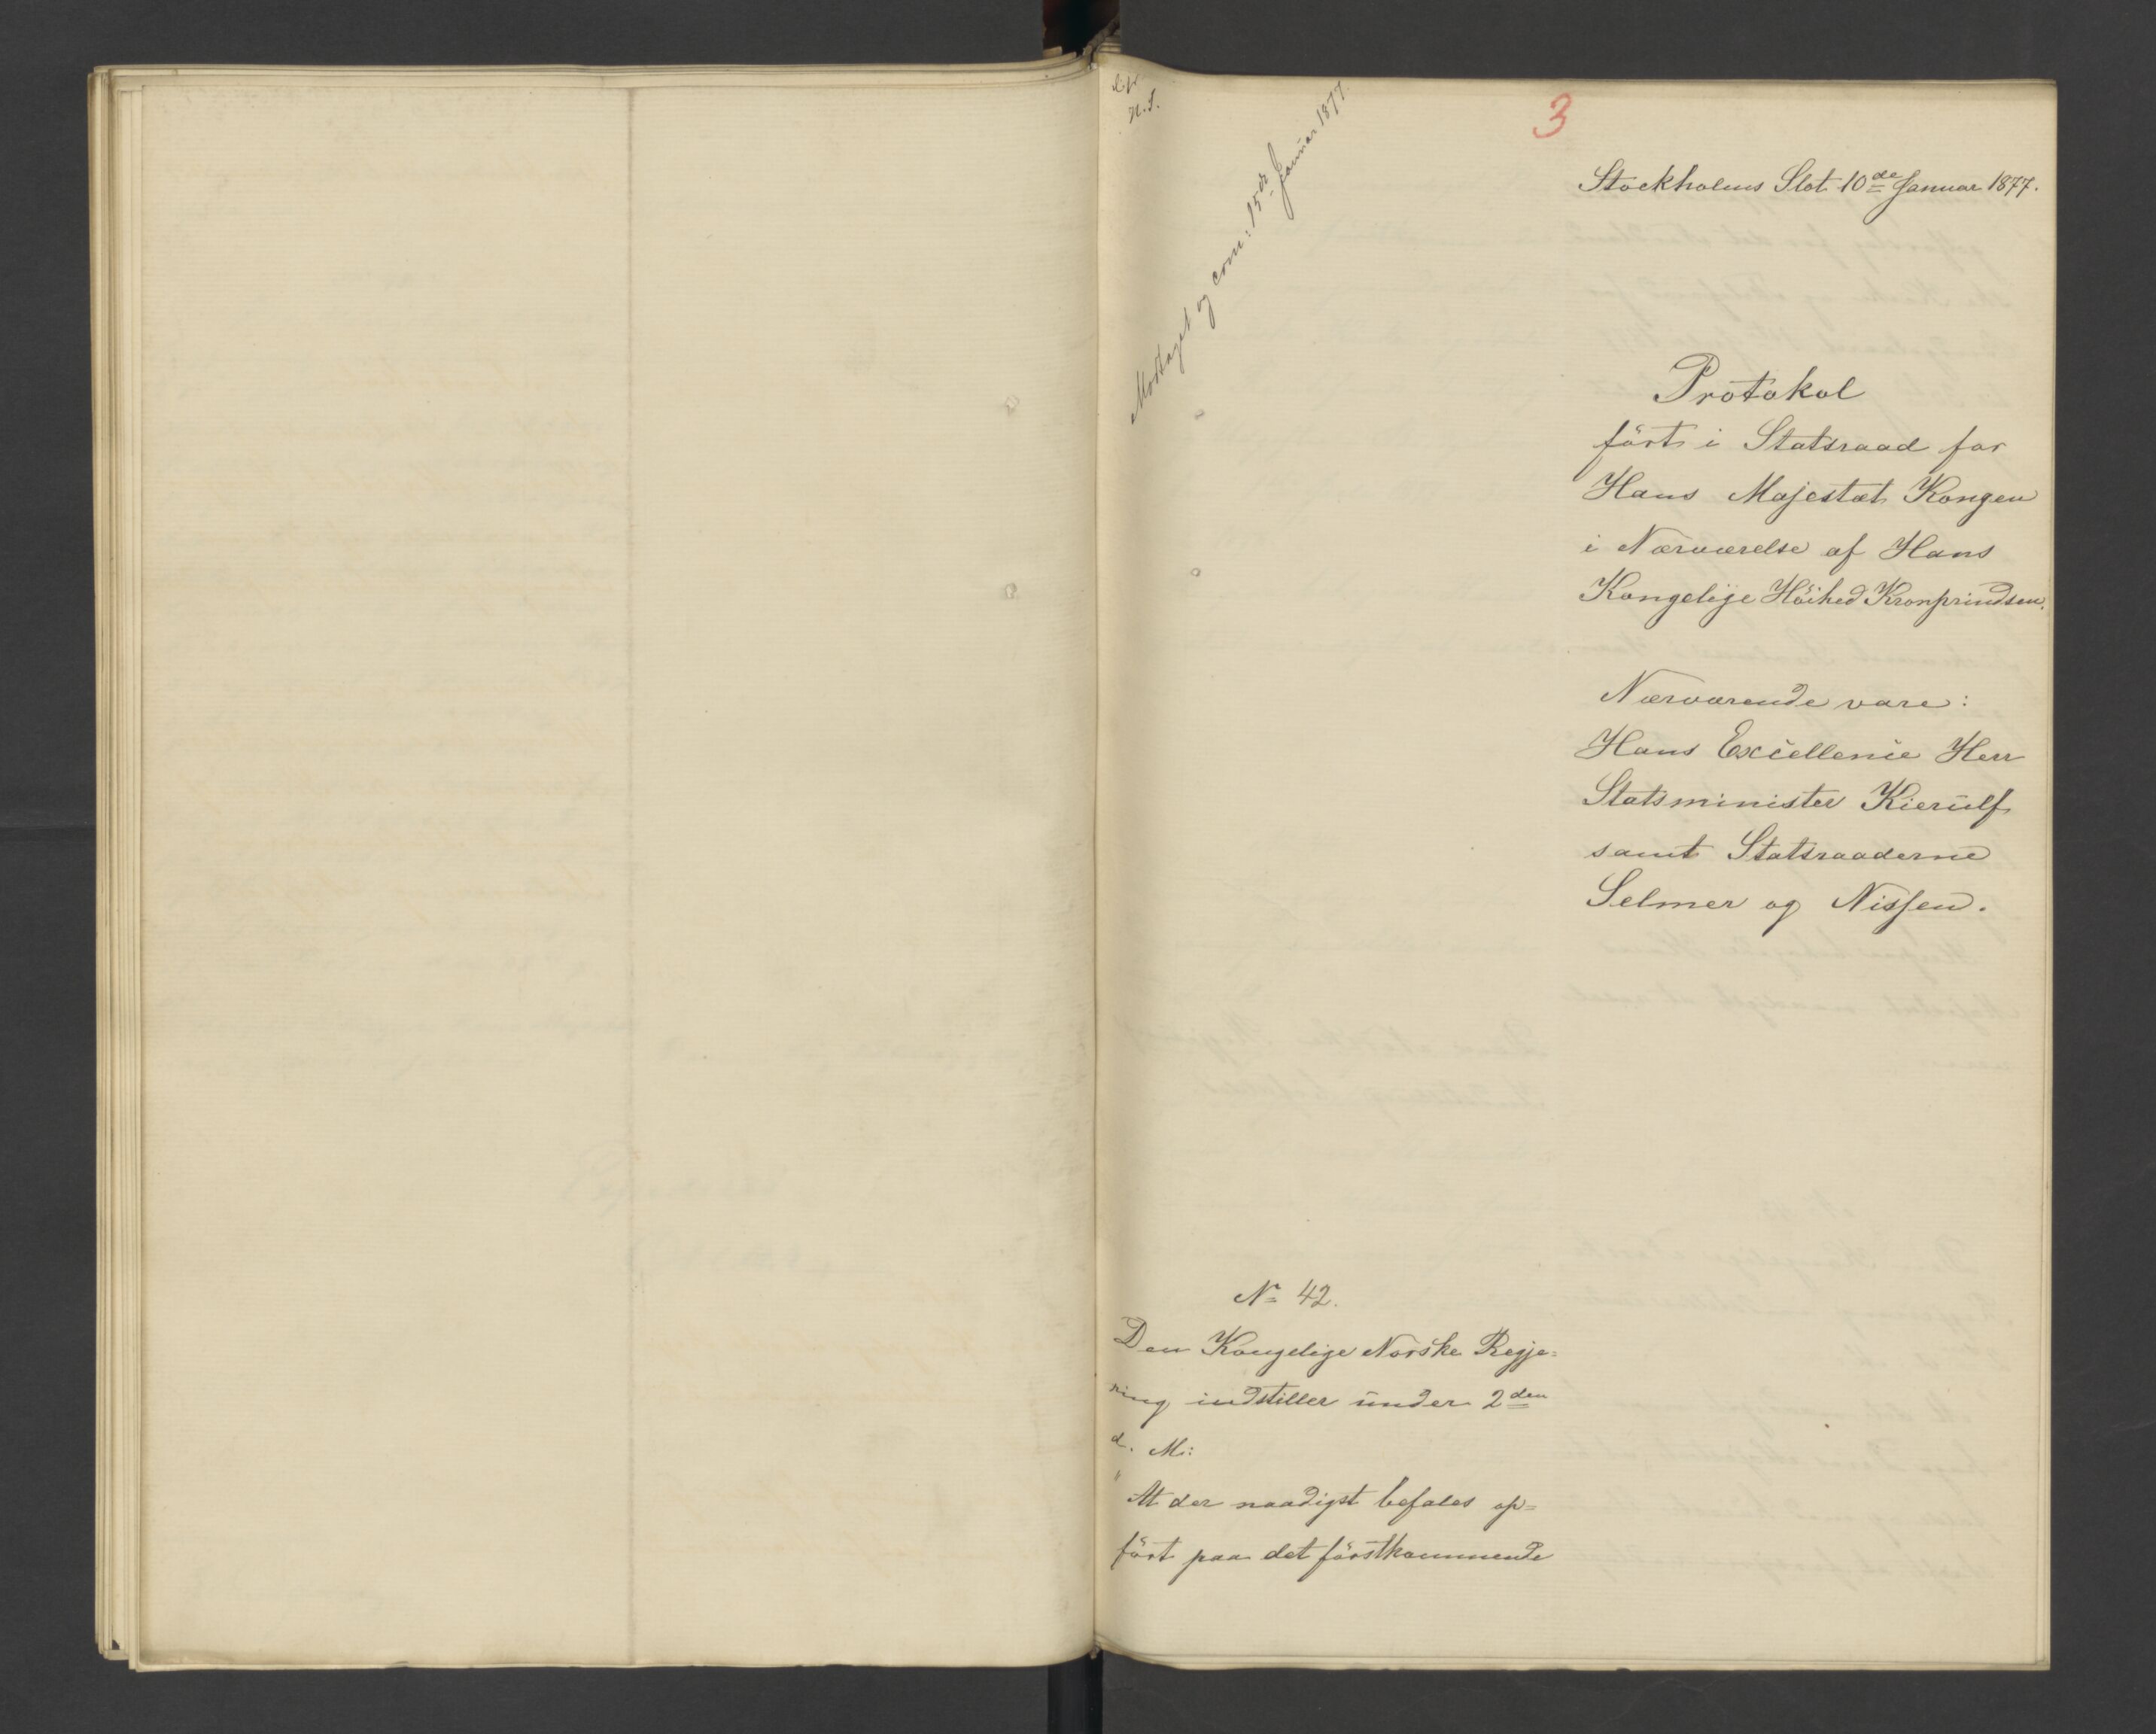 N. S.
Modtaget og com: 15de Januar 1877.
3
Stockholms Slot 10de Januar 1877.
Protokol
ført i Statsraad for
Hans Majestæt Kongen
i Nærværelse af Hans
Kongelige Høihed Kronprindsen.
Nærværende vare:
Hans Excellence Herr
Statsminister Kierulf
samt Statsraaderne
Selmer og Nissen.
No 42.
Den Kongelige Norske Regje=
ring indstiller under 2den
d. M:
"At der naadigst befales op=
ført paa det førstkommende